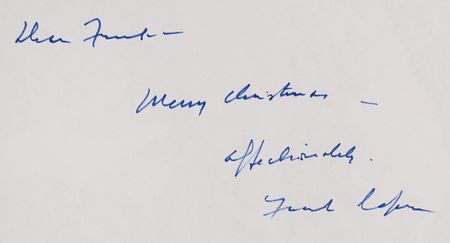 Dear Frank —
Merry Christmas —
affectionately.
Frank